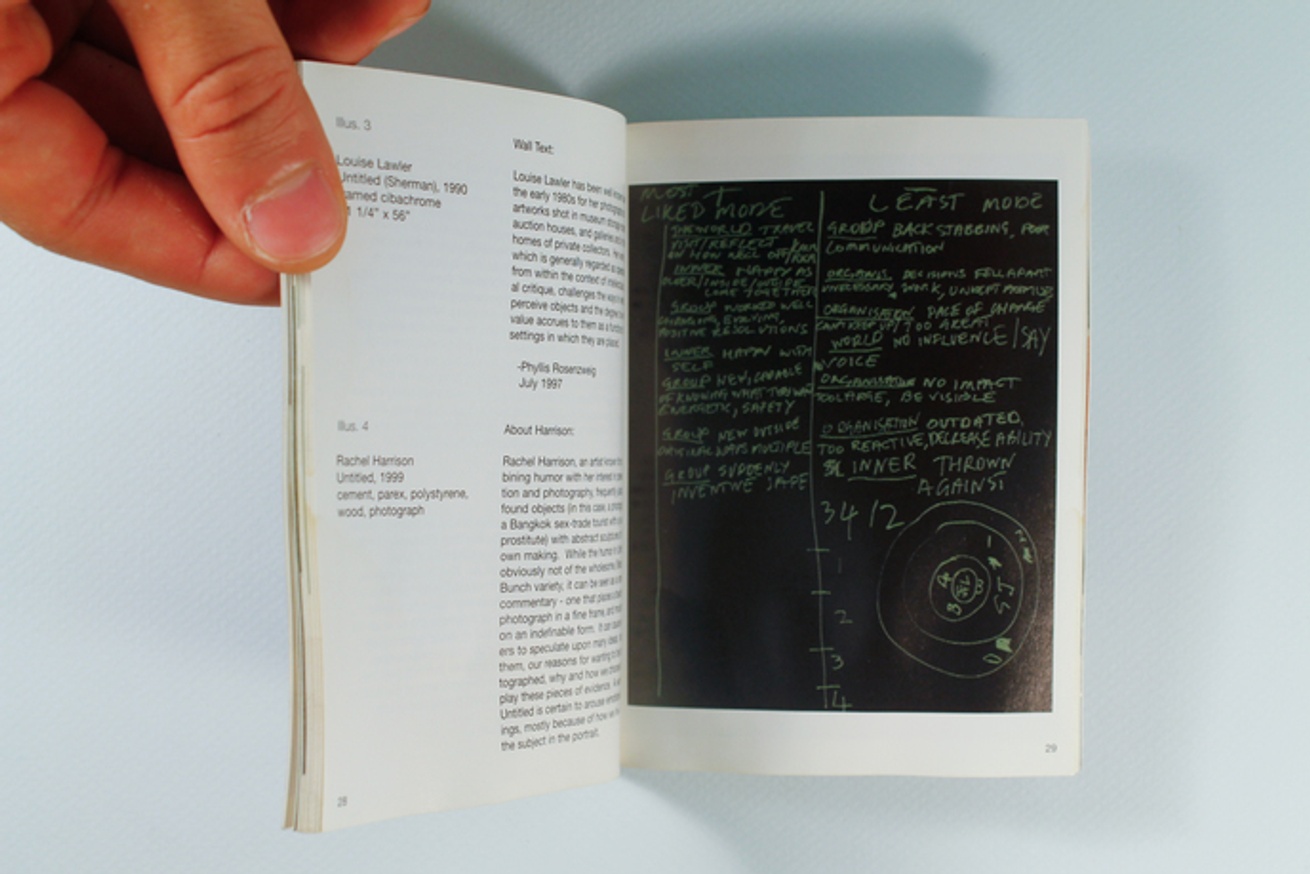 Illus. 3
Louise Lawler
Untitled (Sherman), 1990
framed cibachrome
1 1/4" x 56"
Illus. 4
Rachel Harrison
Untitled, 1999
cement, parex, polystyrene,
wood, photograph
28
Wall Text:
Louise Lawler has been well
the early 1980s for her
artworks shot in museum
auction houses, and galleries
homes of private collectors.
which is generally regarded as
from within the context of
al critique, challenges the
perceive objects and the
value accrues to them as a
settings in which they are placed.
-Phyllis Rosenzweig
July 1997
About Harrison:
Rachel Harrison, an artist
bining humor with her
tion and photography,
found objects (in this case, a
a Bangkok sex-trade tourist
prostitute) with abstract
own making. While the
obviously not of the
Bunch variety, it can be
commentary - one that
photograph in a fine frame,
on an indefinable form. It can
ers to speculate upon many
them, our reasons for
tographed, why and how we
play these pieces of evidence.
Untitled is certain to arouse
ings, mostly because of how
the subject in the portrait.
MOST +
LIKED MODE
WORLD TRAVEL
VISIT/REFLECT
ON HOW WELL OFF
INNER HAPPY AS
OLDER/INSIDE/OUTSIDE
COME TOGETHER
GROUP WORKED WELL
EVOLVING,
POSITIVE RESOLUTIONS
INNER HAPPY WITH
SELF
GROUP NEW, CAPABLE
OF KNOWING WHAT THROWN
ENERGETIC, SAFETY
GROUP NEW OUTSIDE
ORIGINAL WAYS MULTIPLE
GROUP SUDDENLY
INVENTIVE SAFE
LEAST MODE
GROUP BACKSTABBING, POOR
COMMUNICATION
ORGANIS. DECISIONS FELL APART
UNNECESSARY WORK, UNKEPT PROMISES
ORGANISATION PACE OF CHANGE
CAN'T KEEP UP/TOO GREAT
WORLD NO INFLUENCE/SAY
VOICE
ORGANISATION NO IMPACT
TOO LARGE, BE VISIBLE
ORGANISATION OUTDATED,
TOO REACTIVE, DECREASE ABILITY
INNER THROWN
AGAINST
34/2
1
2
3
4
29